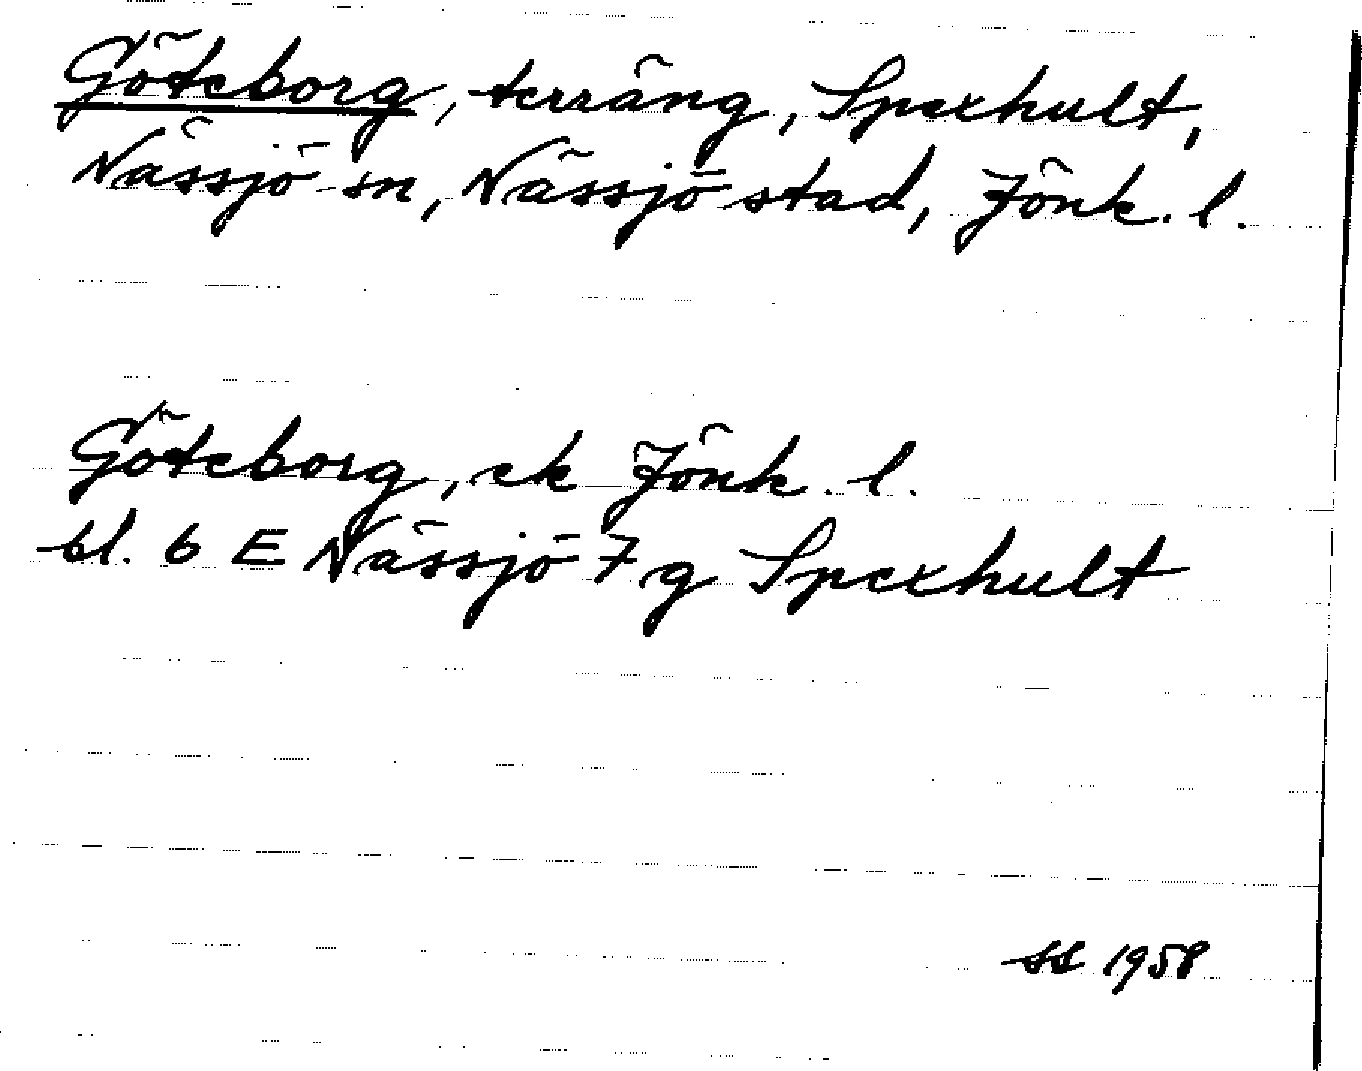 Göteborg, terräng, Spexhult,
Nässjö sn, Nässjö stad, Jönk. l.
Göteborg, ek Jönk. l.
bl. 6 E Nässjö 7 g Spexhult
SS 1958